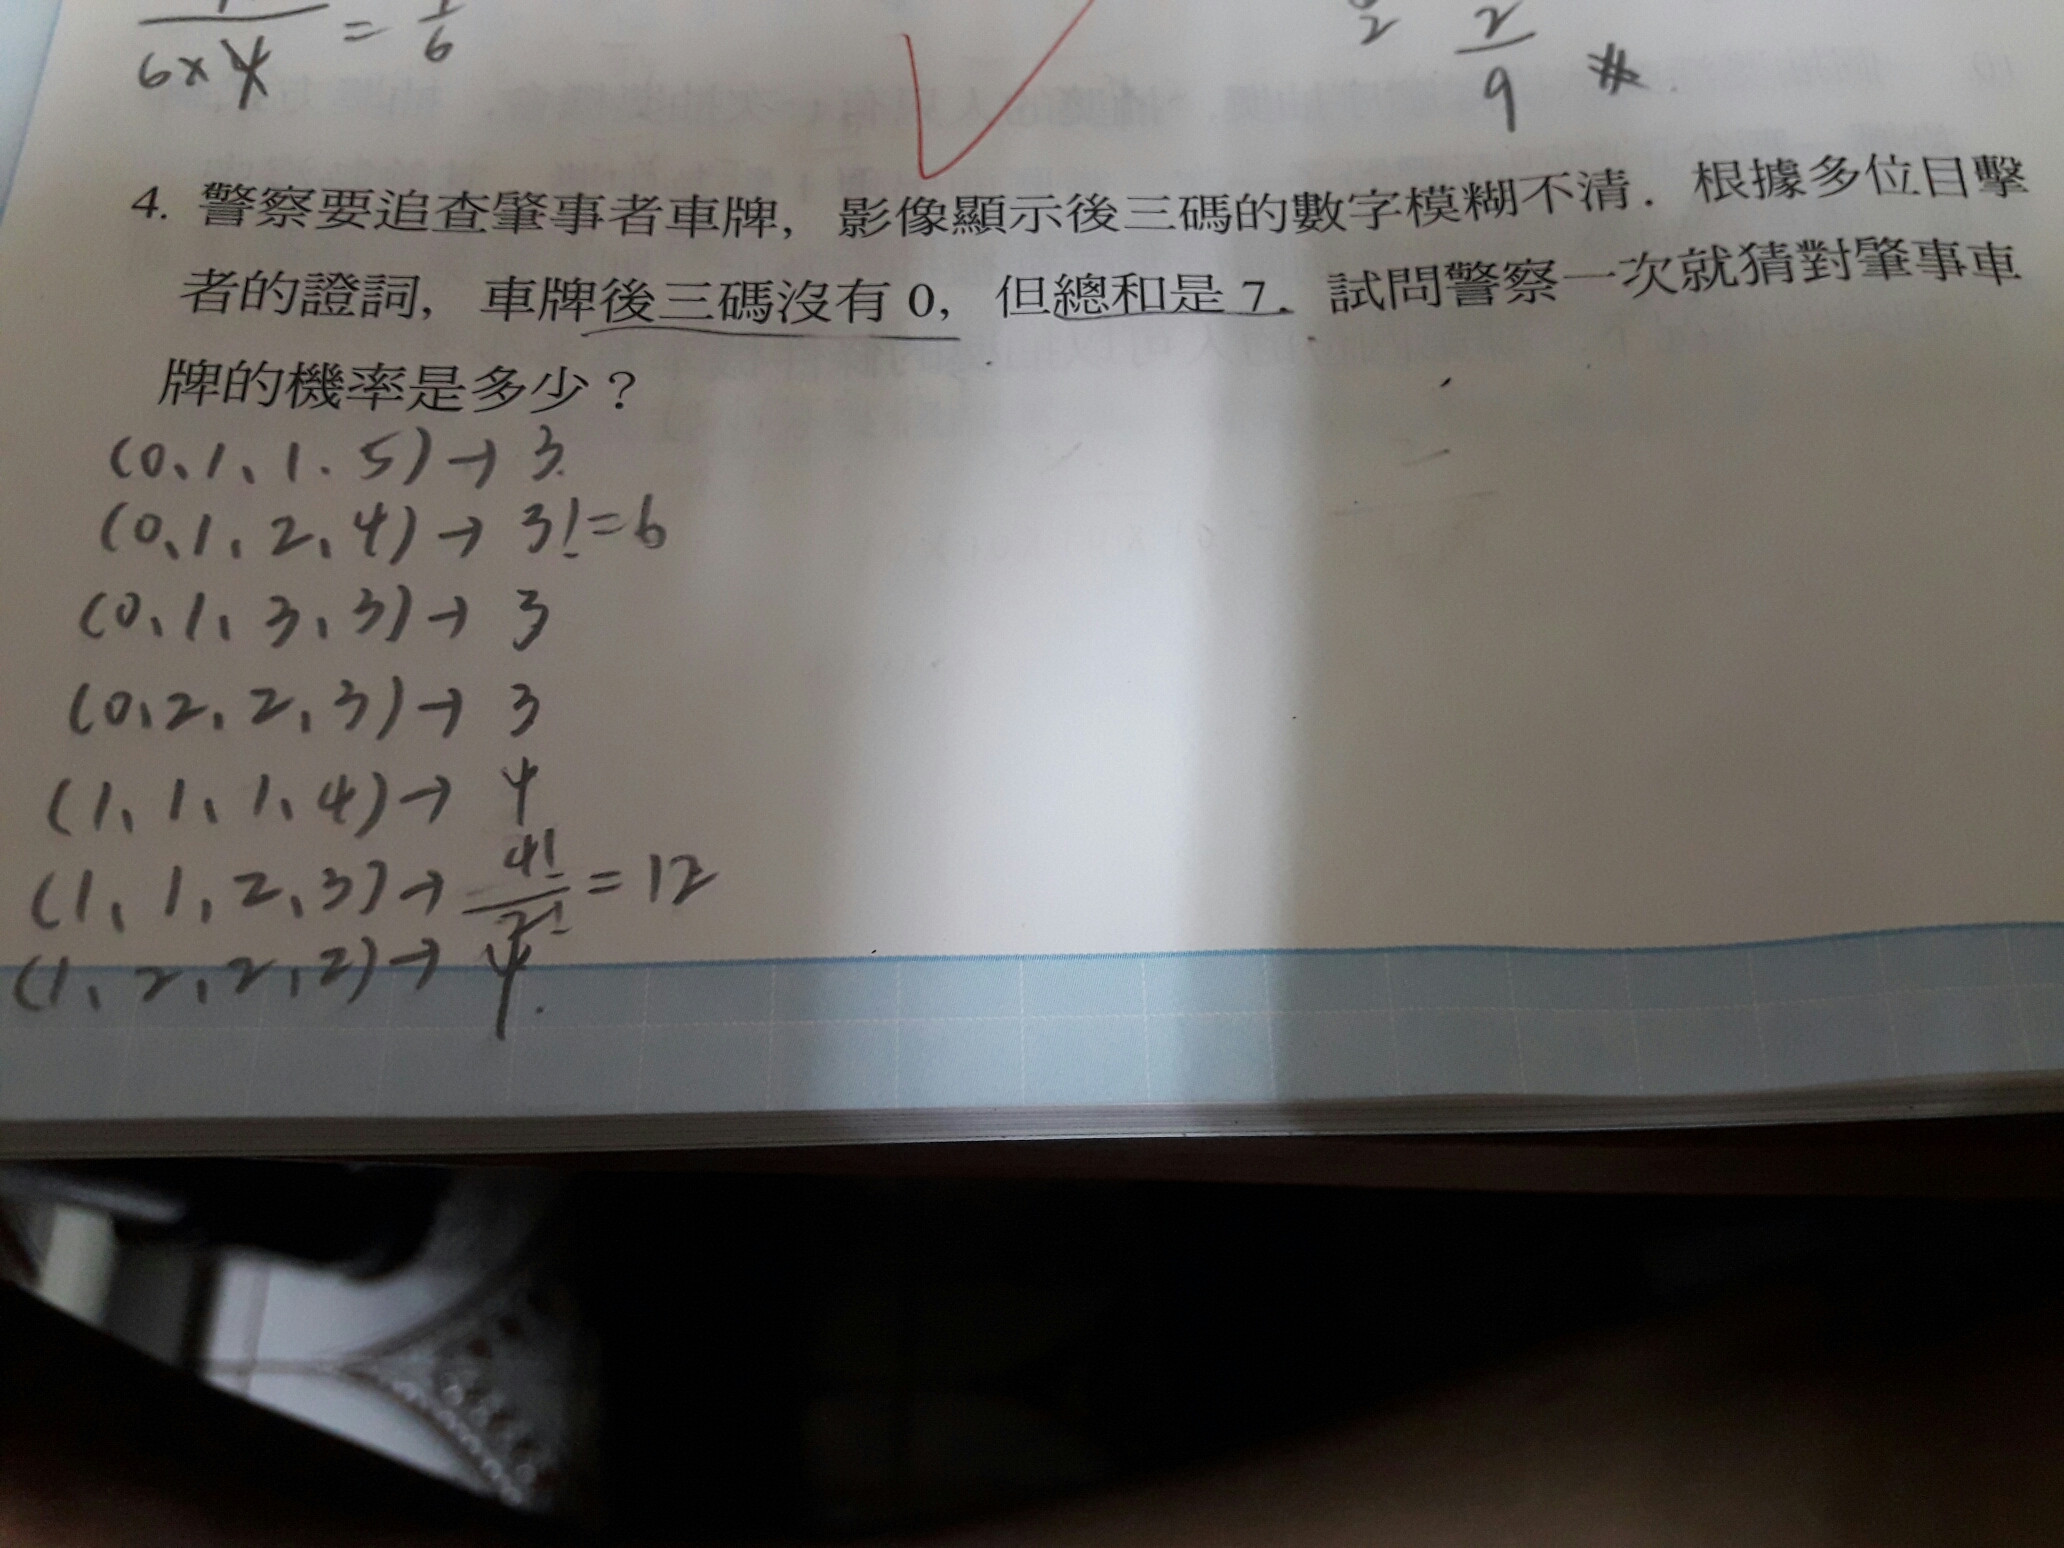 6×4 = 1/6
2/9 #
4. 警察要追查肇事者車牌, 影像顯示後三碼的數字模糊不清. 根據多位目擊
者的證詞, 車牌後三碼沒有 0, 但總和是 7. 試問警察一次就猜對肇事車
牌的機率是多少?
(0、1、1、5)→ 3
(0、1、2、4)→ 3!=6
(0、1、3、3)→ 3
(0、2、2、3)→ 3
(1、1、1、4)→ 4
(1、1、2、3)→ 4!/2! = 12
(1、2、2、2)→ 4.